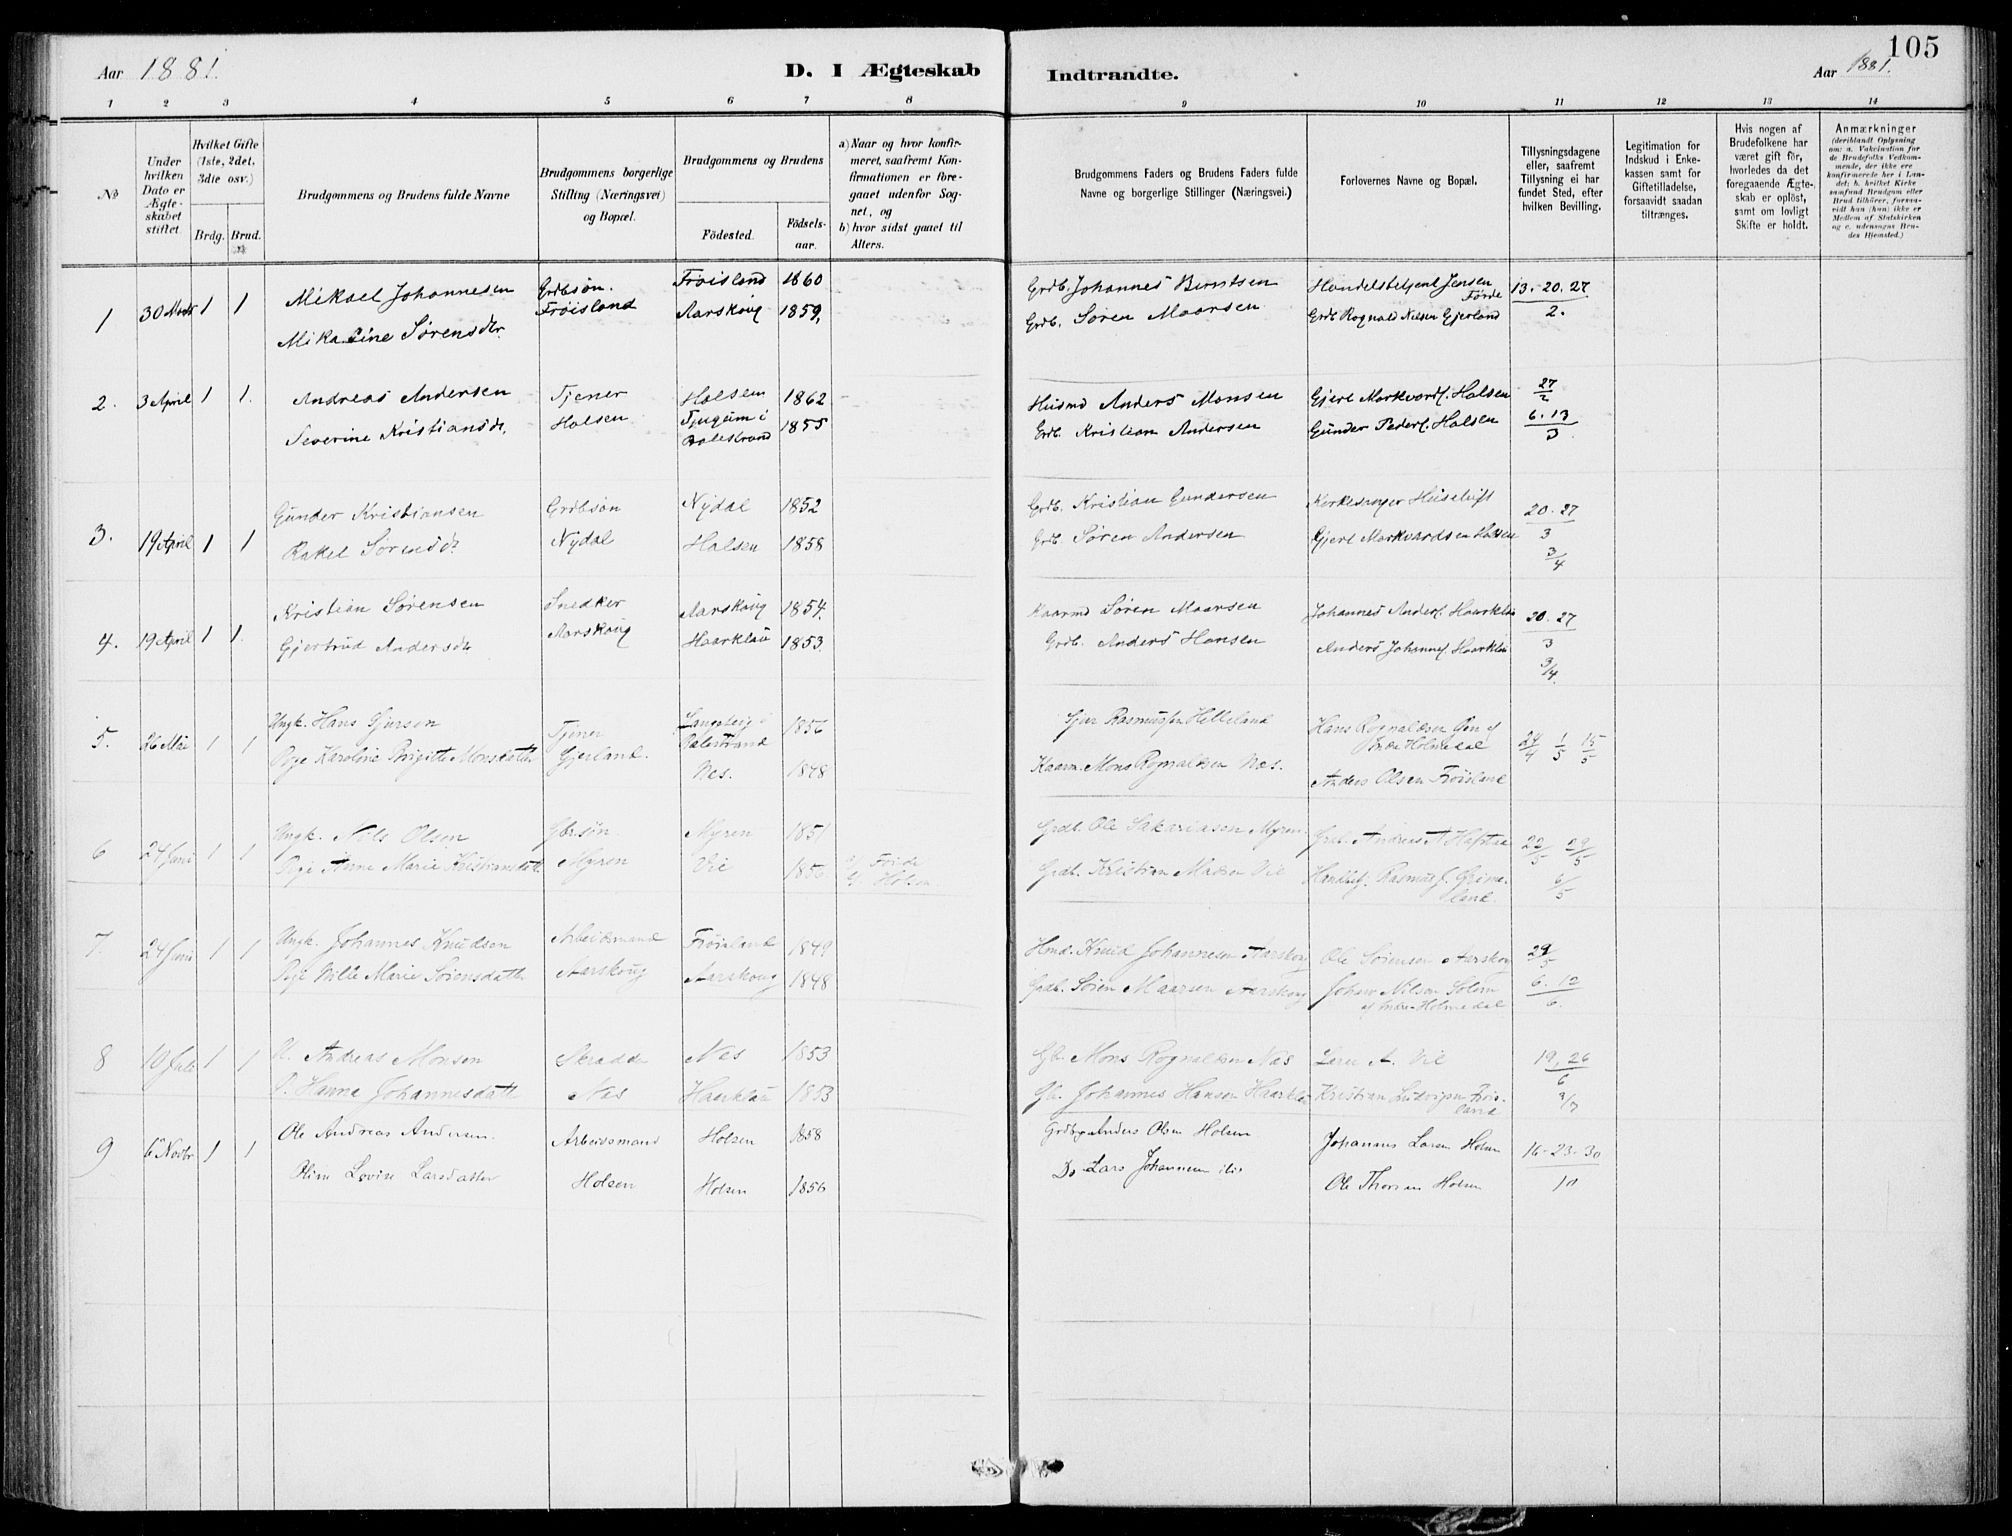 105
Aar 1881.
D. I Ægteskab Indtraadte.
Aar 1881.
1 2 3 4 5 6 7 8 9 10 11 12 13 14
№
Under hvilken Dato er Ægteskabet stiftet.
Hvilket Gifte (1ste, 2det, 3die osv.)
Brdg. Brud.
Brudgommens og Brudens fulde Navne
Brudgommens borgerlige Stilling (Næringsvei) og Bopæl.
Brudgommens og Brudens
Fødested.
Fødselsaar.
a) Naar og hvor konfirmeret, saafremt Konfirmationen er foregaaet udenfor Sognet, og
b) hvor sidst gaaet til Alters.
Brudgommens Faders og Brudens Faders fulde Navne og borgerlige Stillinger (Næringsvei.)
Forlovernes Navne og Bopæl.
Tillysningsdagene eller, saafremt Tillysning ei har fundet Sted, efter hvilken Bevilling.
Legitimation for Indskud i Enkekassen samt for Giftetilladelse, forsaavidt saadan tiltrænges.
Hvis nogen af Brudefolkene har været gift før, hvorledes da det foregaaende Ægteskab er opløst, samt om lovligt Skifte er holdt.
Anmærkninger (deriblandt Oplysning om: a. Vakcination for de Brudefolks Vedkommende, der ikke ere konfirmerede her i Landet; b. hvilket Kirkesamfund Brudgom eller Brud tilhører, forsaavidt han (hun) ikke er Medlem af Statskirken og c. udensogns Brudes Hjemsted.)
1 30 Marts 1 1 Mikael Johannesen Grdbsøn. Frøisland 1860 Grdb. Johannes Berntsen Handelsbetjent Jensen Førde 13-20-27
Mikaline Sørensdtr. Frøisland Aarskoug 1859, Grdb. Søren Maarsen Grdb Rognald Nilsen Gjerland 2.
2. 3 April 1 1. Andreas Andersen Tjener Holsen 1862 Husmd Anders Monsen Gjert Markvards. Holsen 27/2
Severine Kristiansdr. Holsen Tjugum i Balestrand 1855 Grdb. Kristian Andersen Gunder Peders. Holsen 6.13/3.
3. 19 April 1 1 Gunder Kristiansen Grdbsøn Nydal 1852 Grdb. Kristian Gundersen Kirkesanger Huseklift 20-27
Rakel Sørensdr Nydal Holsen 1858 Grdb. Søren Andersen Gjert Markvardsen Holsen 3
3/4
4. 19 April 1 1. Kristian Sørensen Snedker Aarskoug 1854. Kaarmd Søren Maarsen Johannes Anders. Haarklau 20-27
Gjertrud Andersdr Aarskoug Haarklau 1853. Grdb. Anders Hansen Anders Johannes. Haarklau 3
3/4.
5. 26 Mai 1 1 Ungk. Hans Gjerson Tjener Balestrand 1856 Gjer Rasmussen Helleland Hans Rognaldsen 24/4 1/5 15/5
Pige Karoline Birgitte Monsdatter Gjerland. Nes. 1848 Kaarm. Mons Rognaldsen Nes. Indre Holmedal
Anders Olsen Frøisland
6 24 Juni 1 1 Ungk. Nils Olsen Gbr.søn. Myren 1851 Grdb. Ole Sakariasen Myren. Grdb. Andreas A Hafstad 22/5 29/5
Pige Anne Marie Kristiansdatt. Myren Vie 1856 a) Førde b) Holsen. Grdb. Kristian Madsen Vie Rasmus J. Grimeland. 6/5
7. 24 Juni 1 1 Ungk. Johannes Knudson Arbeidsmand Frøisland 1849 Hmd. Knud Johannesen Aarskoug Ole Sørensen Aarskoug 29/5
Pige Wille Marie Sørensdatter Aarskoug Aarskoug 1848 Grdb. Søren Maarsen Aarskoug Johan Nilsen Solem af Indre Holmedal 6.12/6.
8 10 Juli 1 1 U. Andreas Monsen Skrædder Nes 1853 Gb. Mons Rognaldsen Nes Lærer A. Vie 19.26/6
P. Hanna Johannesdatt. Nes Haarklau 1853 Gb. Johannes Hansen Haarklau Kristian Ludvigsen Frøisland 3/7
9 6 Novbr 1 1 Ole Andreas Andersen. Arbeidsmand Holsen 1858 Grdbr. Anders Olsen Holsen Johannes Larsen Holsen 16-23-30
Oline Lovise Larsdatter Holsen Holsen 1856 Do Lars Johannesen ibid Ole Thorsen Holsen 10